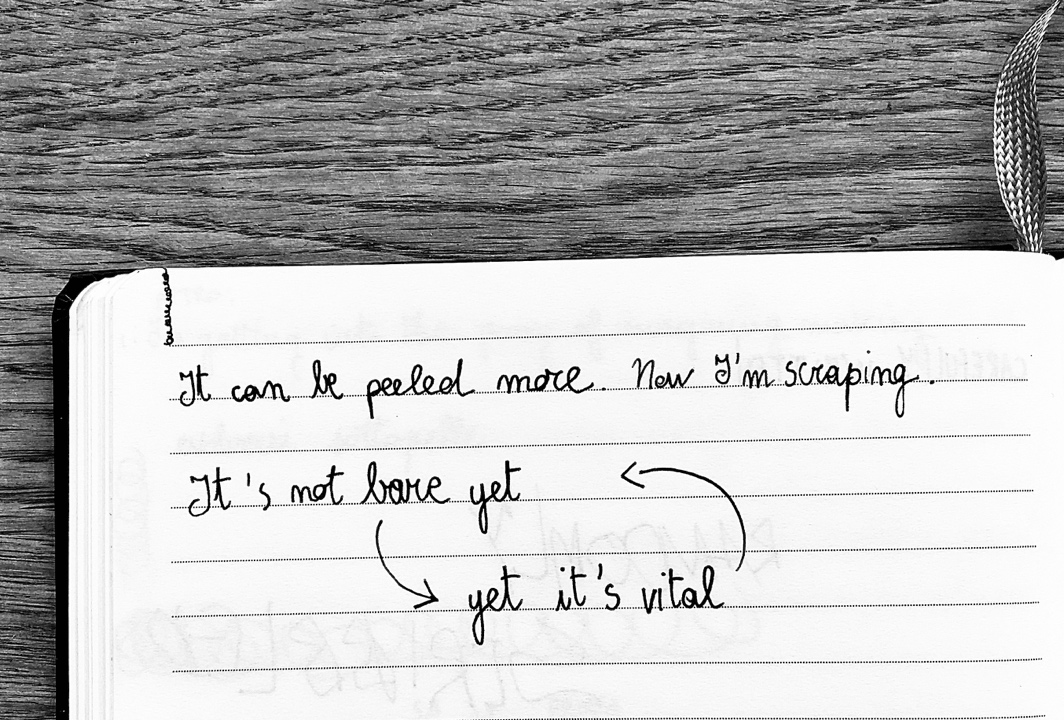 It can be peeled more. Now I'm scraping.
It's not bare yet
yet it's vital